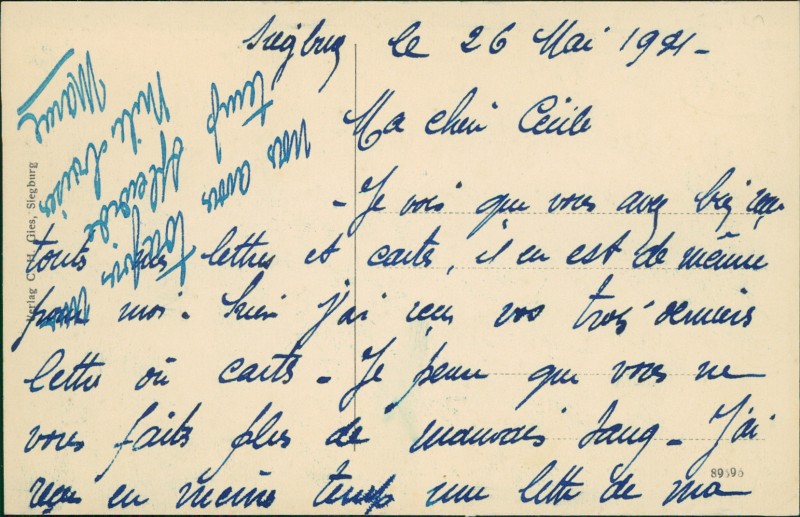 Siegburg le 26 Mai 1921-
Ma cheri Cécile
- Je vois que vous avez bien reçu
touts mes lettres et cartes, il en est de même
pour moi. hier j'ai reçu vos trois derniers
lettre où carts - Je pense que vous ne
vous faits plus de mauvais sang - J'ai
reçu en meme temp une lettre de ma
nous avons toujours
temp splendide
Mille baisers
Marcel
Verlag C. H. Gies, Siegburg
89596